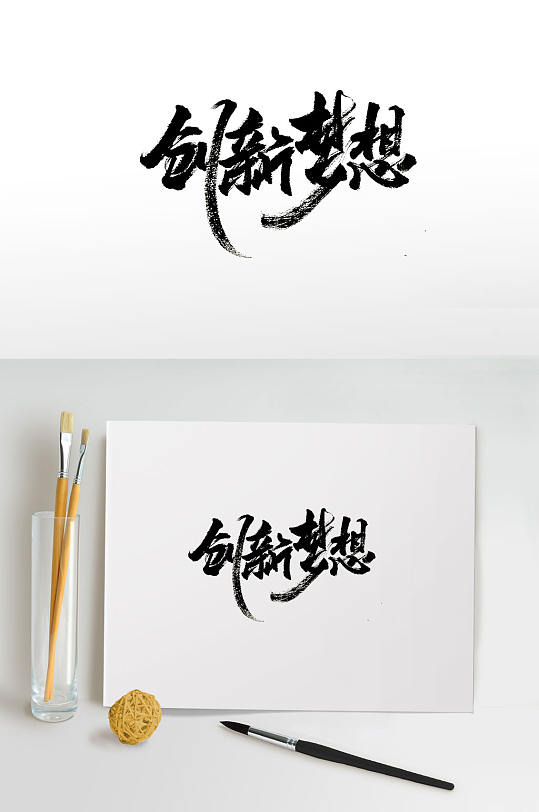 创新梦想
创新梦想